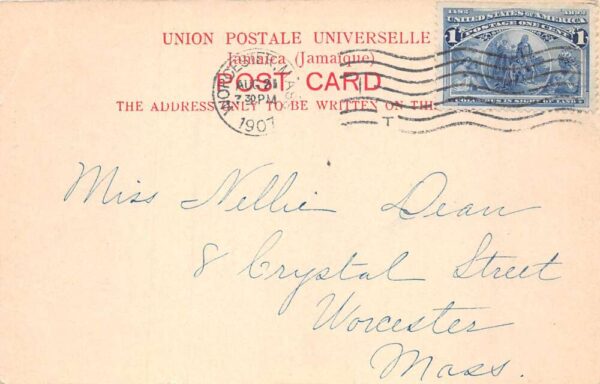 UNION POSTALE UNIVERSELLE
Jamaica (Jamaique)
POST CARD
THE ADDRESS ONLY TO BE WRITTEN ON THIS
WORCESTER, MASS.
AUG 21
7 30 PM
1907
T
1492 1892
UNITED STATES OF AMERICA
POSTAGE ONE CENT
1 1
COLUMBUS IN SIGHT OF LAND
Miss Nellie Dean
8 Crystal Street
Worcester
Mass.